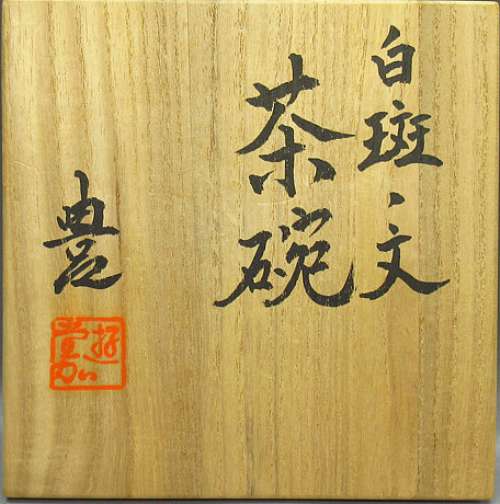 白斑・文
茶碗
豊